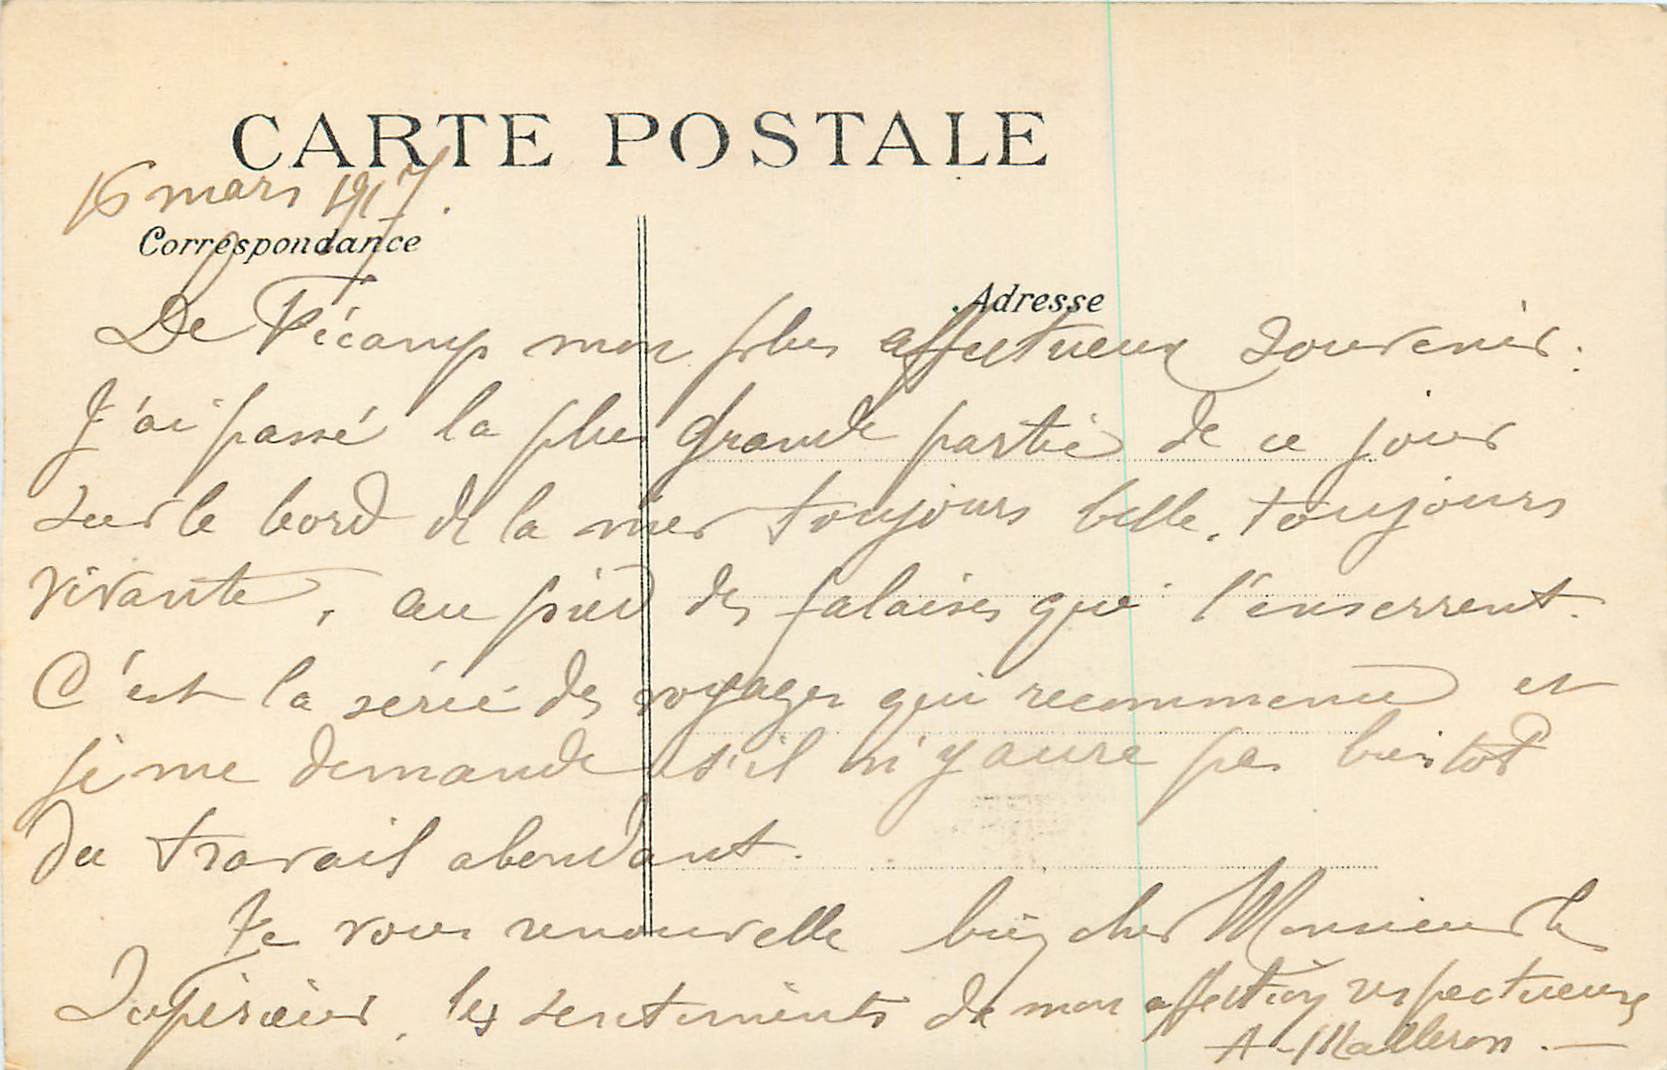 CARTE POSTALE
16 mars 1917.
Correspondance
Adresse
De Fécamp mon plus affectueux souvenir.
J'ai passé la plus grande partie de ce jour
sur le bord de la mer toujours belle, toujours
vivante, au pied des falaises qui l'enserrent.
C'est la série des voyages qui recommence et
je me demande s'il n'y aura pas bientôt
du travail abondant.
Je vous renouvelle bien cher Monsieur le
Supérieur, les sentiments de mon affection respectueuse
A. Malleron. —